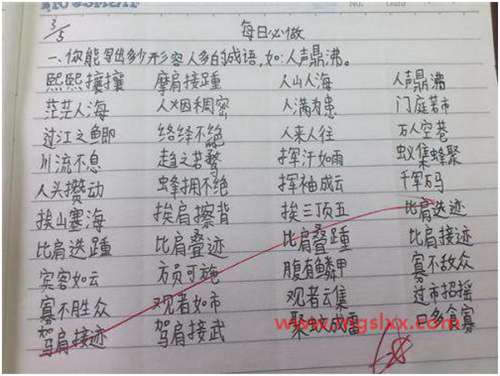 3/5
每日必做
一、你能写出多少形容人多的成语,如:人声鼎沸。
熙熙攘攘 摩肩接踵 人山人海 人声鼎沸
茫茫人海 人烟稠密 人满为患 门庭若市
过江之鲫 络绎不绝 人来人往 万人空巷
川流不息 趋之若鹜 挥汗如雨 蚁集蜂聚
人头攒动 蜂拥不绝 挥袖成云 千军万马
挨山塞海 挨肩擦背 挨三顶五 比肩迭迹
比肩迭踵 比肩叠迹 比肩叠踵 比肩接迹
宾客如云 方员可施 腹有鳞甲 寡不敌众
寡不胜众 观者如市 观者云集 过市招摇
驾肩接迹 驾肩接武 聚蚊成雷 日多食寡
www.mgslxx.com